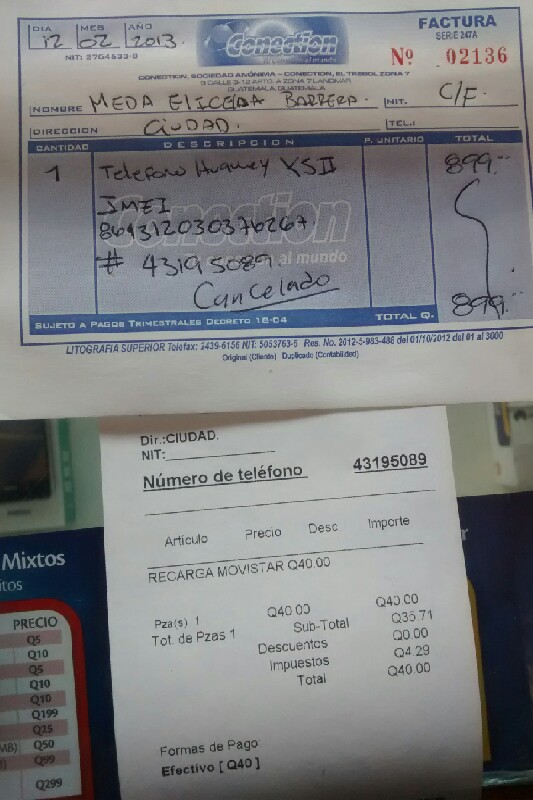 DIA MES AÑO
12 02 2013.
Conection
al mundo
FACTURA
SERIE 247A
Nº 02136
CONECTION, SOCIEDAD ANÓNIMA - CONECTION, EL TREBOL ZONA 7
GUATEMALA, GUATEMALA
NOMBRE MEDA ELICEDA BARRERA. NIT. C/F.
DIRECCION CIUDAD. TEL.:
CANTIDAD DESCRIPCION P. UNITARIO TOTAL
1 Telefono Huawey YSII 899.
IMEI
# 43195089.
Conection
al mundo
Cancelado
899.
SUJETO A PAGOS TRIMESTRALES DECRETO 18-04 TOTAL Q.
LITOGRAFIA SUPERIOR Telefax: 2439-6156 NIT: 5053763-5 Res. No. 2012-5-983-486 del 01/10/2012 del 01 al 3000
Original (Cliente) Duplicado (Contabilidad)
Dir.:CIUDAD.
NIT:
Número de teléfono 43195089
Articulo Precio Desc Importe
RECARGA MOVISTAR Q40.00
Pza(s) 1 Q40.00 Q40.00
Tot. de Pzas 1 Sub-Total Q35.71
Descuentos Q0.00
Impuestos Q4.29
Total Q40.00
Formas de Pago
Efectivo [ Q40 ]
Mixtos
itos
PRECIO
Q5
Q10
Q5
Q10
Q10
Q199
Q25
MB) Q50
Q99
Q299